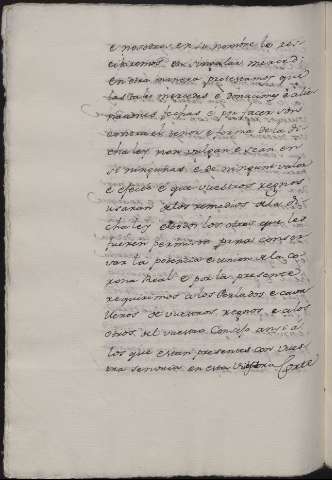 e nosotros en su nombre lo res-
cibiremos en singular merced:
en otra manera protestamos que
las tales mercedes e donaciones e alie-
naciones fechas e por facer son
contra el tenor e forma de la di-
cha ley non valgan e sean en
si ningunas, e de ningunt valor
e efecto e que vuestros regnos
usaran de los remedios de la di-
cha ley e todos los otros que les
fueren permisos para conser-
var la potencia e union de la co-
rona Real e por la presente
requirimos a los Perlados e cava-
lleros de vuestros regnos e a los
otros del vuestro Consejo ansi a
los que estan presentes con vues-
tra senoria en esta vuestra Corte